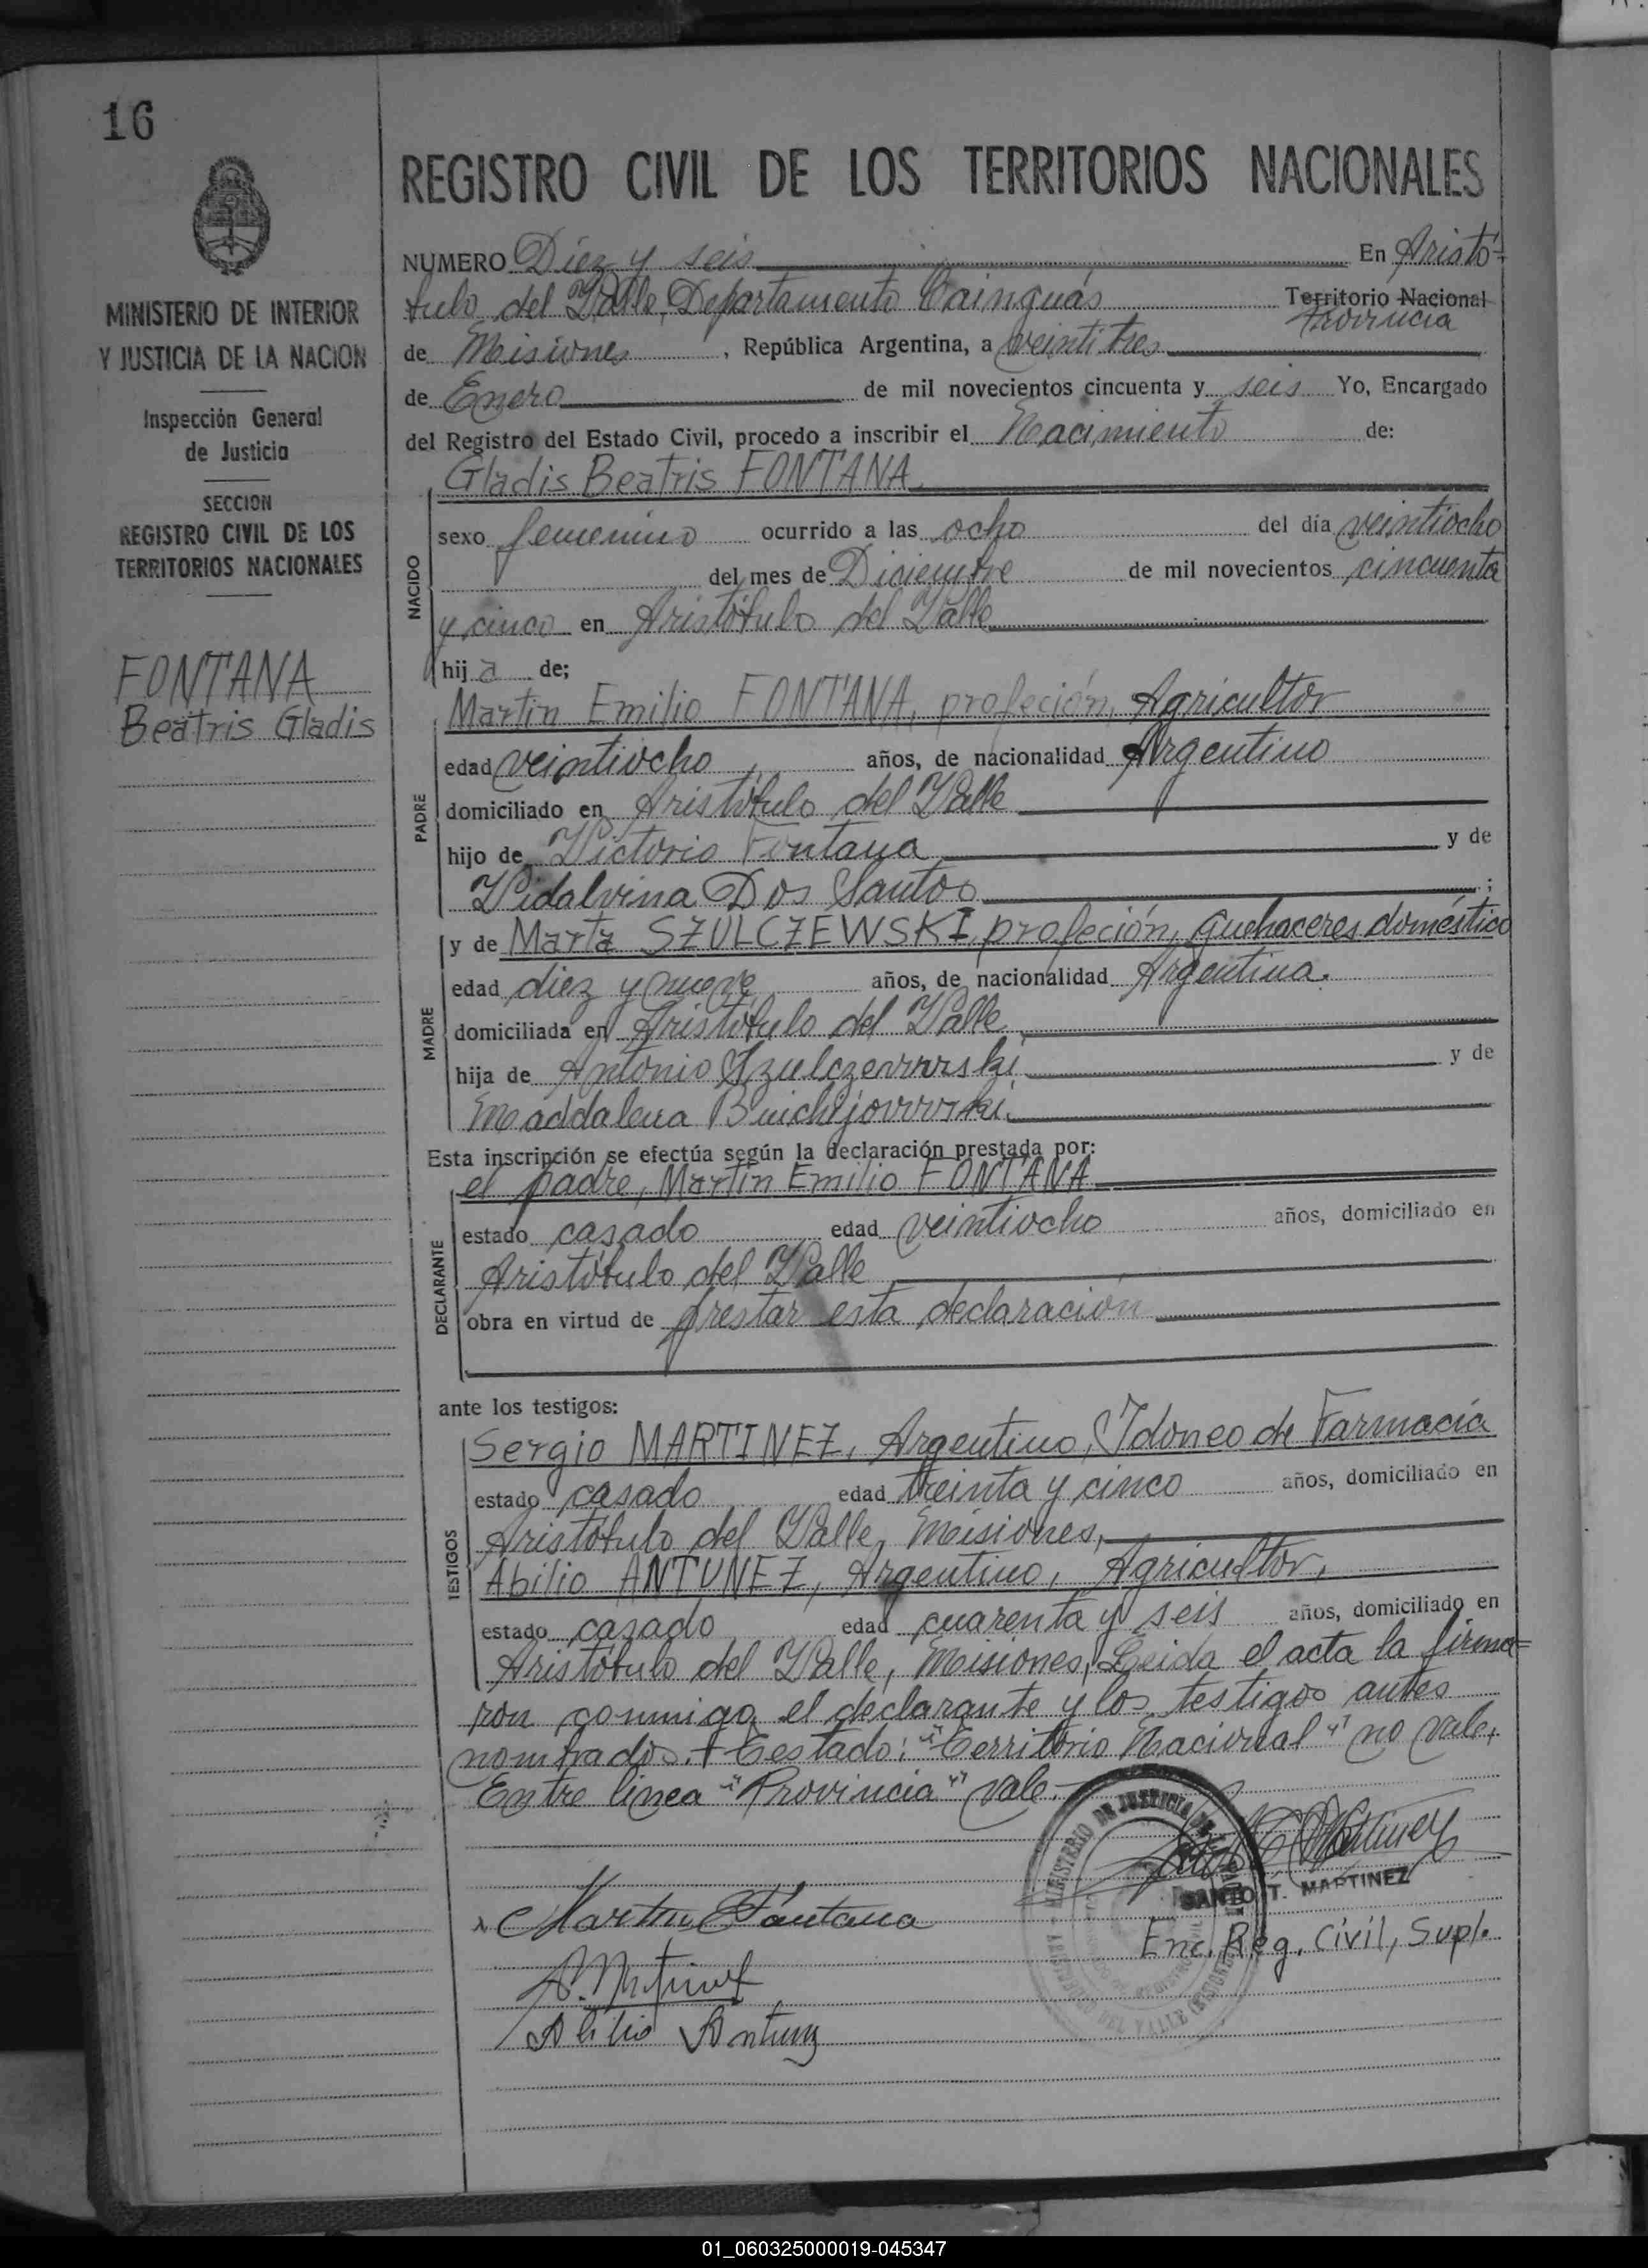 16
REGISTRO CIVIL DE LOS TERRITORIOS NACIONALES
MINISTERIO DE INTERIOR
Y JUSTICIA DE LA NACION
Inspección General
de Justicia
SECCION
REGISTRO CIVIL DE LOS
TERRITORIOS NACIONALES
FONTANA
Beatris Gladis
NUMERO Diez y seis En Aristó-
tulo del Valle, Departamento Cainguás Territorio Nacional
Provincia
de Misiones, República Argentina, a veintitres
de Enero de mil novecientos cincuenta y seis Yo, Encargado
del Registro del Estado Civil, procedo a inscribir el Nacimiento de:
Gladis Beatris FONTANA
NACIDO
sexo femenino ocurrido a las ocho del día veintiocho
del mes de Diciembre de mil novecientos cincuenta
y cinco en Aristótulo del Valle
hija de;
PADRE
Martin Emilio FONTANA, profeción, Agricultor
edad veintiocho años, de nacionalidad Argentino
domiciliado en Aristótulo del Valle
hijo de Victorio Fontana y de
Vidalvina Dos Santos ;
MADRE
y de Marta SZULCZEWSKI, profeción, Quehaceres doméstico
edad diez y nueve años, de nacionalidad Argentina.
domiciliada en Aristótulo del Valle
hija de Antonio Szulczewski y de
Maddalena
Esta inscripción se efectúa según la declaración prestada por:
DECLARANTE
el padre, Martín Emilio FONTANA
estado casado edad veintiocho años, domiciliado en
Aristótulo del Valle
obra en virtud de prestar esta declaración
ante los testigos:
TESTIGOS
Sergio MARTINEZ, Argentino, Idoneo de Farmacía
estado casado edad treinta y cinco años, domiciliado en
Aristótulo del Valle, Misiones,
Abilio ANTUNEZ, Argentino, Agricultor,
estado casado edad cuarenta y seis años, domiciliado en
Aristótulo del Valle, Misiones, Leida el acta la firma=
ron conmigo el declarante y los testigos antes
nombrados. + Testado: "Territorio Nacional" no vale,
Entre línea "Provincia" vale.-
MINISTERIO DE JUSTICIA
DEL VALLE
Martin Fontana
SANTO T. MARTINEZ
Enc. Reg. Civil, Supl.
S. Martinez
Abilio Antunez
01_060325000019-045347